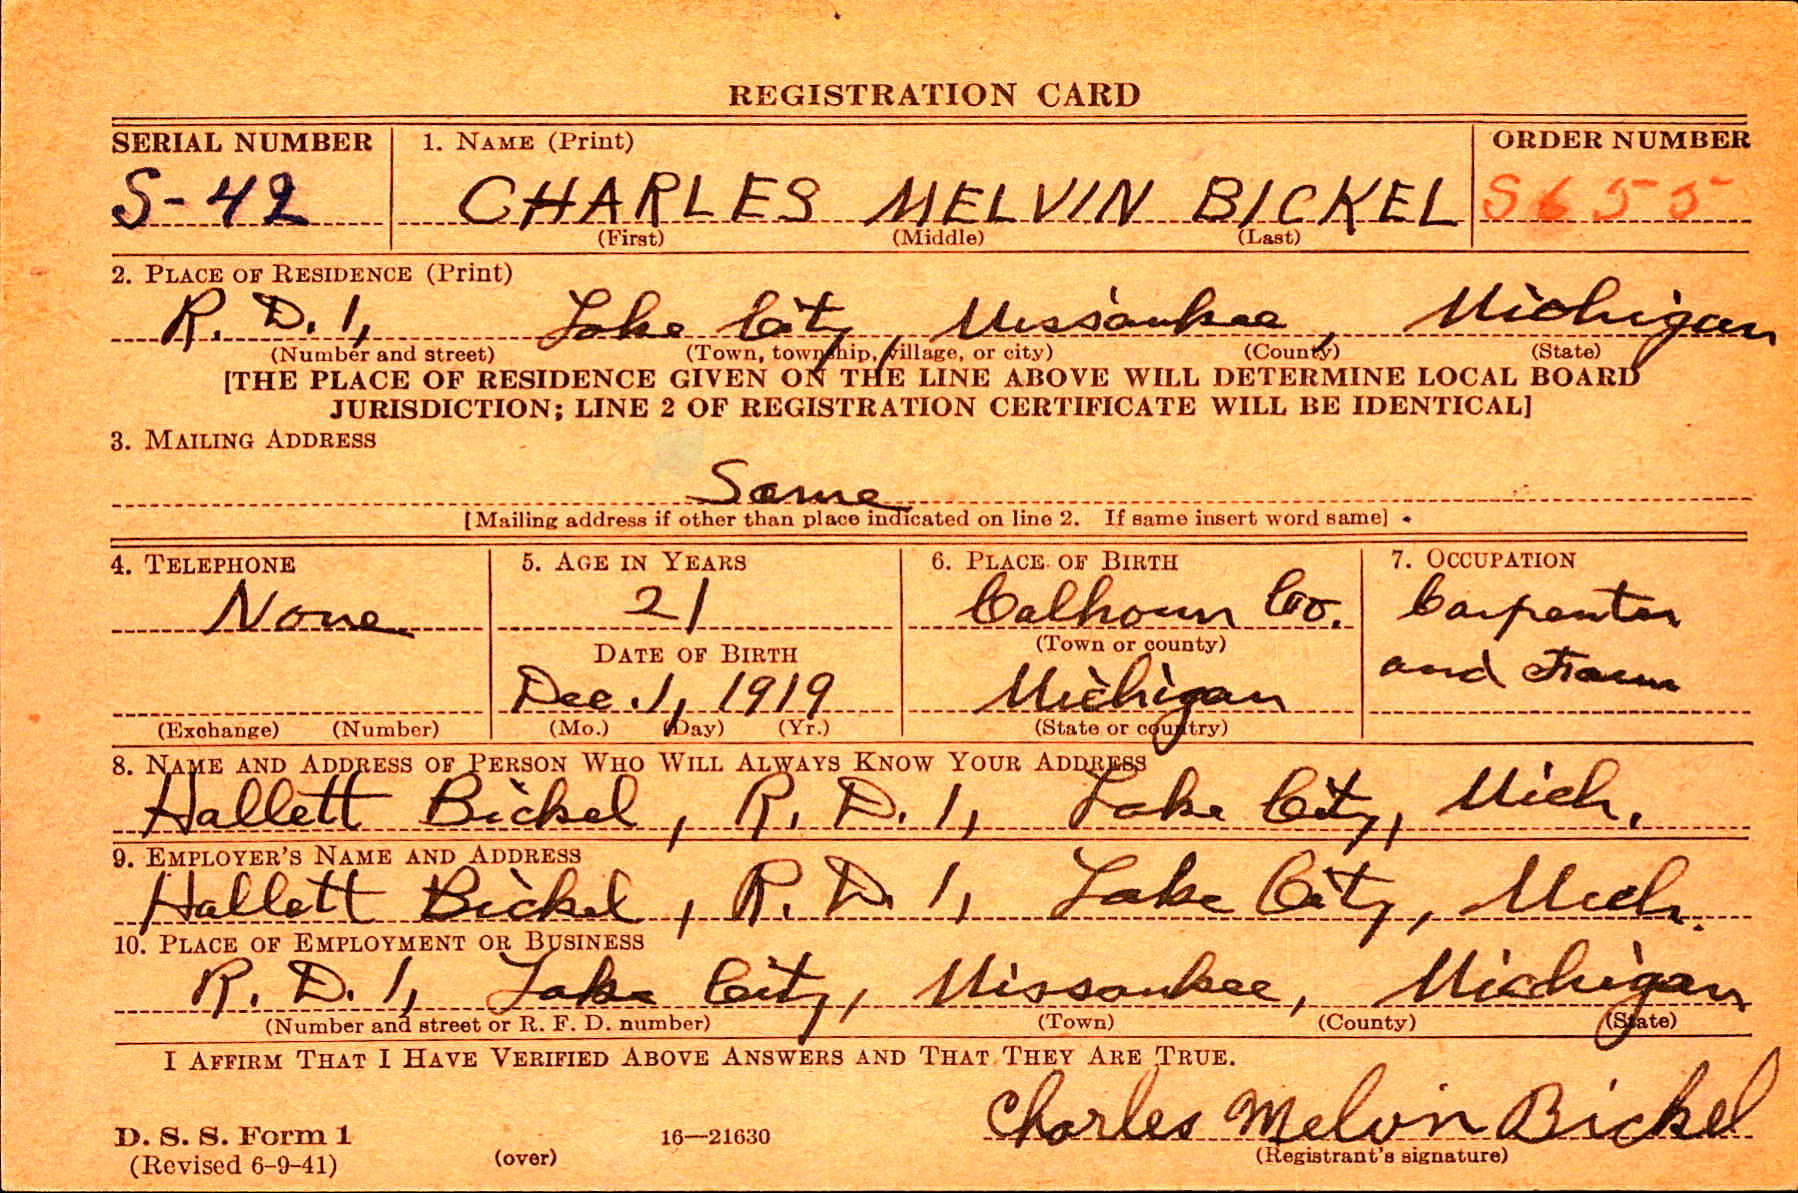 REGISTRATION CARD
SERIAL NUMBER 1. NAME (Print) ORDER NUMBER
S-42 CHARLES MELVIN BICKEL S655
(First) (Middle) (Last)
2. PLACE OF RESIDENCE (Print)
R. D. 1, Lake City, Missaukee, Michigan
(Number and street) (Town, township, village, or city) (County) (State)
[THE PLACE OF RESIDENCE GIVEN ON THE LINE ABOVE WILL DETERMINE LOCAL BOARD
JURISDICTION; LINE 2 OF REGISTRATION CERTIFICATE WILL BE IDENTICAL]
3. MAILING ADDRESS
Same
[Mailing address if other than place indicated on line 2. If same insert word same]
4. TELEPHONE 5. AGE IN YEARS 6. PLACE OF BIRTH 7. OCCUPATION
None 21 Calhoun Co. Carpenter
DATE OF BIRTH (Town or county)
Dec. 1, 1919 Michigan and Farm
(Exchange) (Number) (Mo.) (Day) (Yr.) (State or country)
8. NAME AND ADDRESS OF PERSON WHO WILL ALWAYS KNOW YOUR ADDRESS
Hallett Bickel, R. D. 1, Lake City, Mich.
9. EMPLOYER'S NAME AND ADDRESS
Hallett Bickel, R. D. 1, Lake City, Mich.
10. PLACE OF EMPLOYMENT OR BUSINESS
R. D. 1, Lake City, Missaukee, Michigan
(Number and street or R. F. D. number) (Town) (County) (State)
I AFFIRM THAT I HAVE VERIFIED ABOVE ANSWERS AND THAT THEY ARE TRUE.
Charles Melvin Bickel
D. S. S. Form 1 16—21630
(Revised 6-9-41) (over) (Registrant's signature)